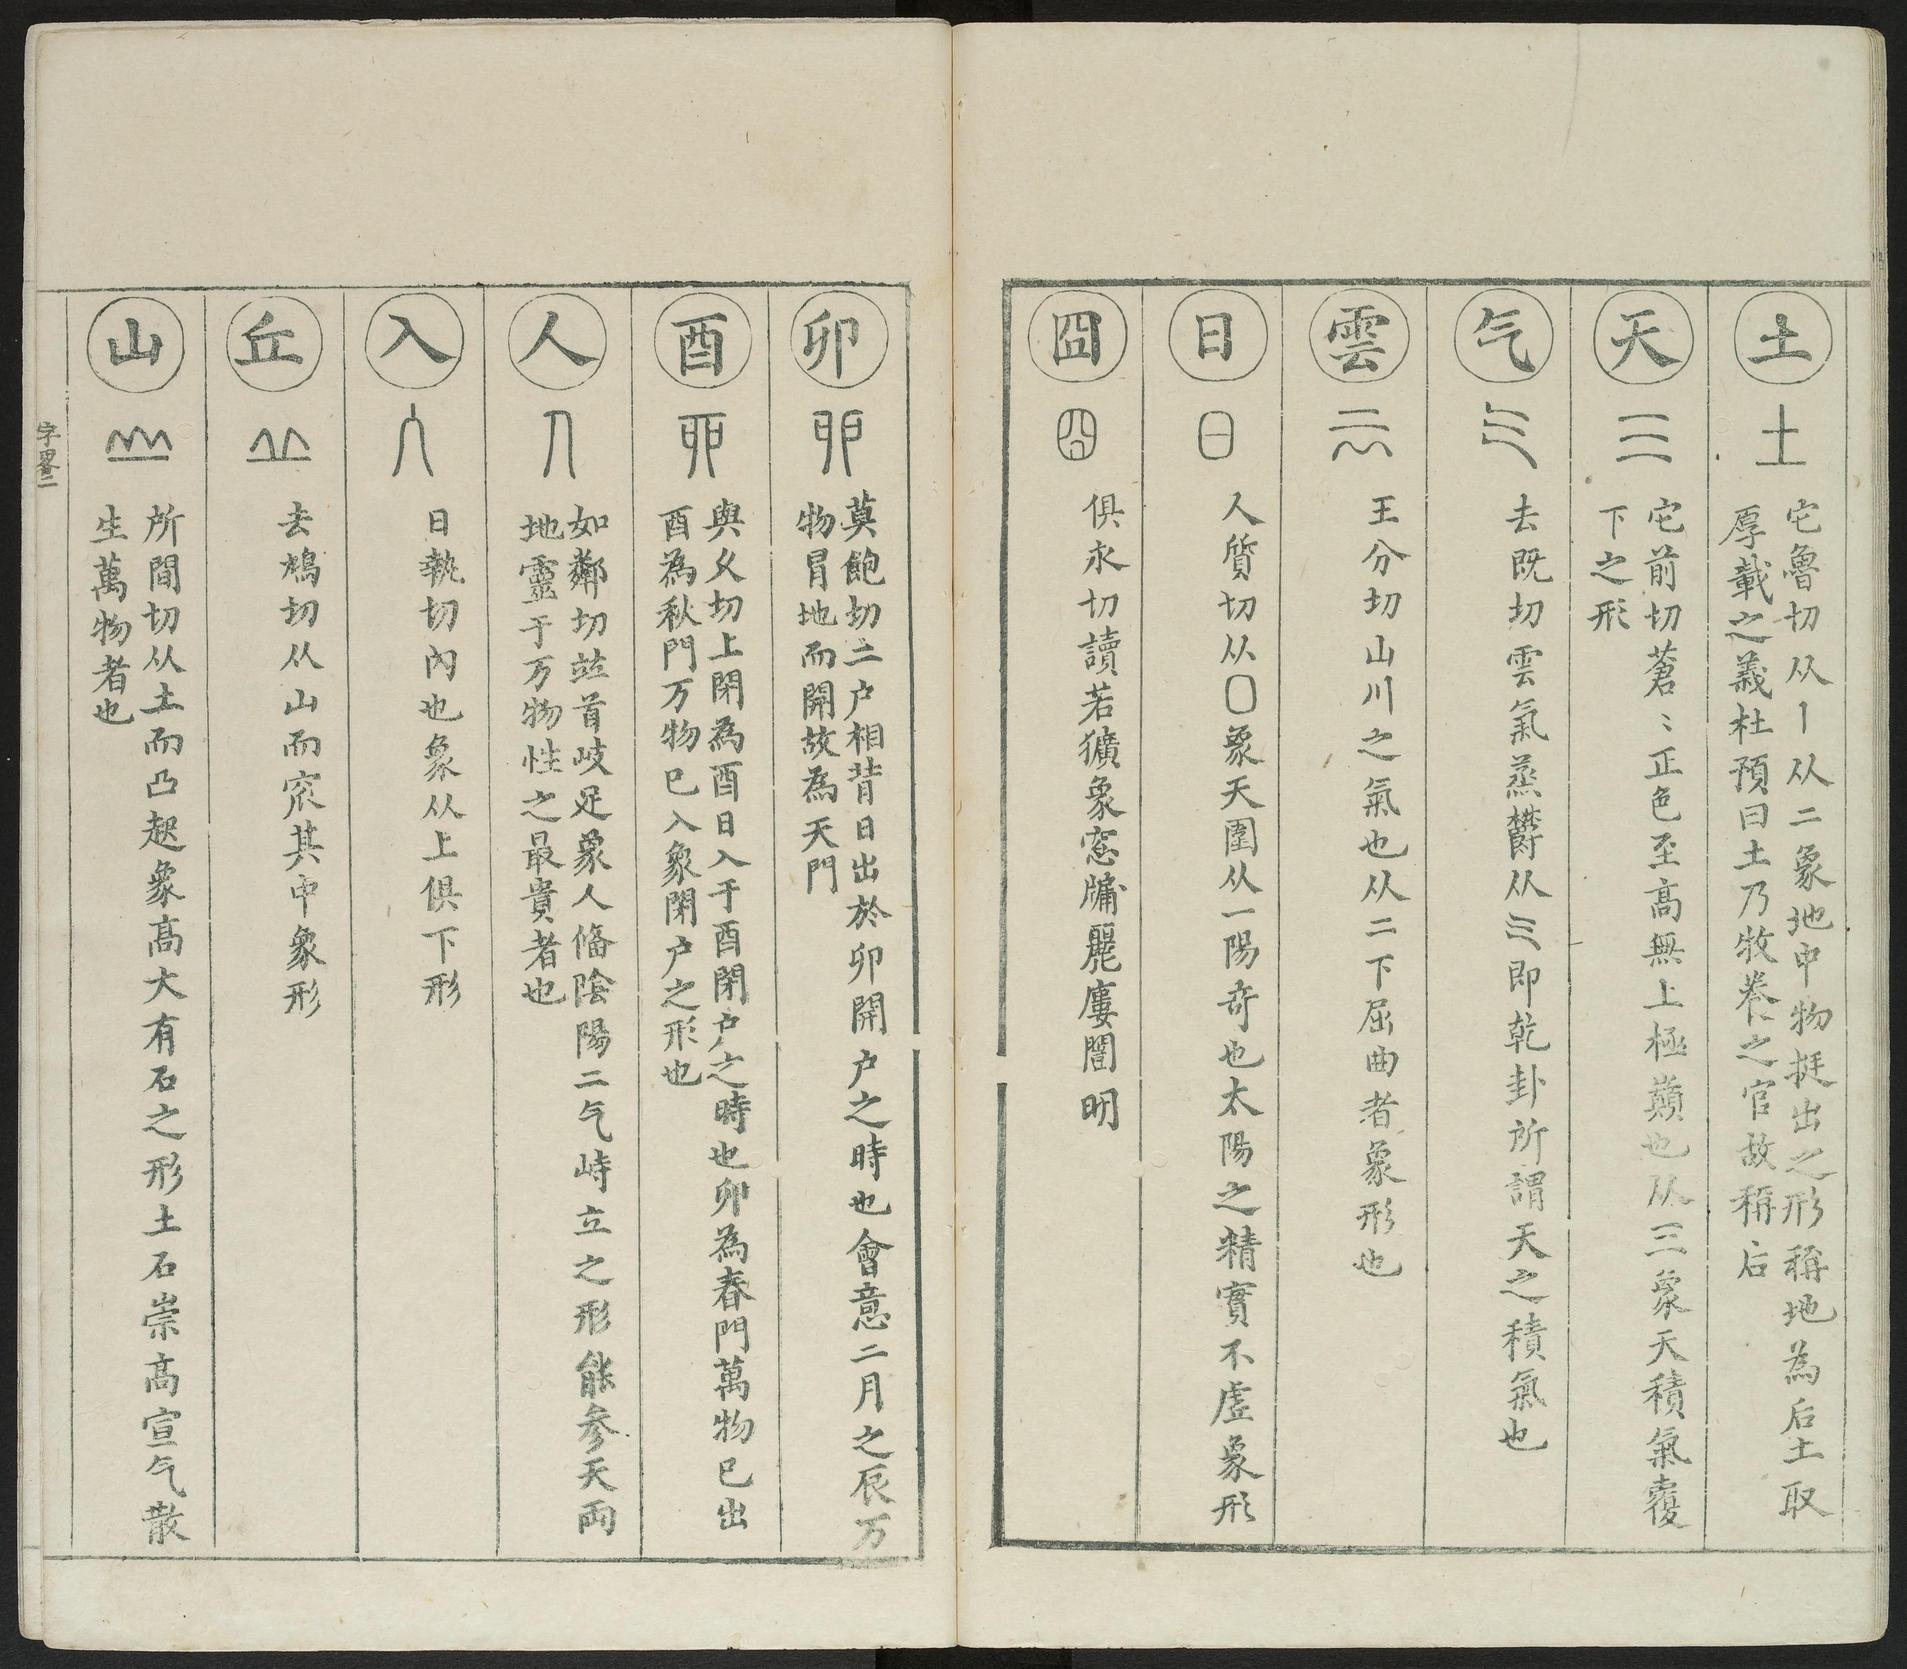 土
土
宅魯切从丨从二象地中物挺出之形稱地為后土取
厚載之義杜預曰土乃牧養之官故稱后
天
宅前切蒼〻正色至高無上極巔也从三象天積氣覆
下之形
气
去既切雲氣蒸欝从三即乾卦所謂天之積氣也
雲
王分切山川之氣也从二下屈曲者象形也
日
日
人質切从〇象天圍从一陽奇也太陽之精實不虛象形
囧
囧
俱永切讀若獷象窓牗麗廔闓明
卯
莫飽切二户相背日出於卯開户之時也會意二月之辰万
物冒地而開故為天門
酉
與久切上閉為酉日入于酉閉户之時也卯為春門萬物已出
酉為秋門万物已入象閉户之形也
人
如鄰切竝首岐足象人俻陰陽二气峙立之形能参天兩
地靈于万物性之最貴者也
入
日執切內也象从上俱下形
丘
去鳩切从山而窊其中象形
山
所間切从土而凸起象高大有石之形土石崇高宣气散
生萬物者也